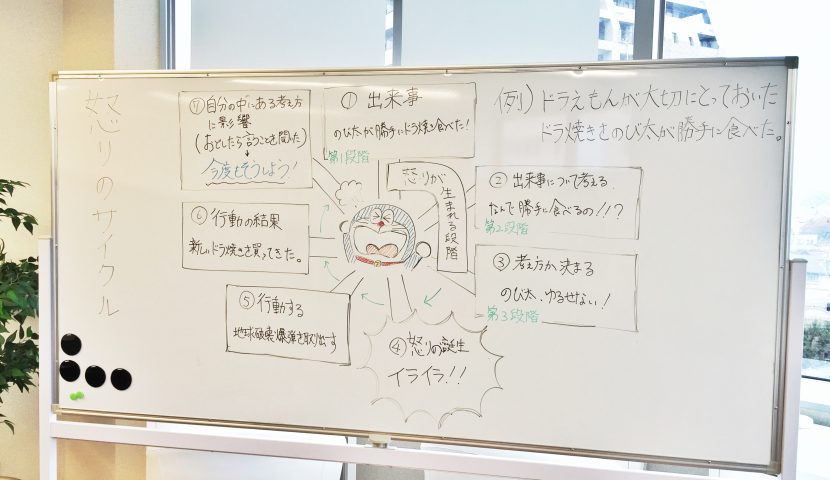 怒りのサイクル
例) ドラえもんが大切にとっておいた
ドラ焼きをのび太が勝手に食べた。
① 出来事
のび太が勝手にドラ焼き食べた!
第1段階
怒りが
生まれる段階
② 出来事について考える
なんで勝手に食べるの!!?
第2段階
③ 考え方が決まる
のび太、ゆるせない!
第3段階
④ 怒りの誕生
イライラ!!
⑤ 行動する
地球破壊爆弾を取り出す
⑥ 行動の結果
新しいドラ焼きを買ってきた。
⑦ 自分の中にある考え方
に影響
(おどしたら言うことを聞いた)
今度もそうしよう!